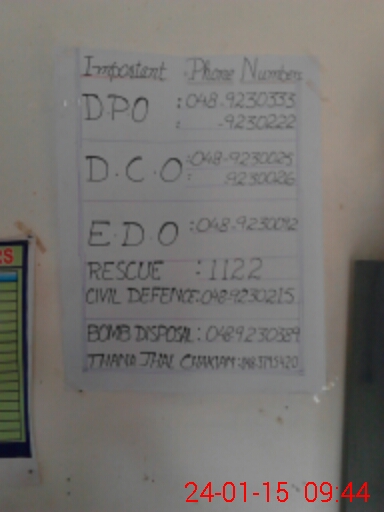 Impostent Phone Numbers
D.P.O :048-9230333
: -9230222
D.C.O :048-9230025
: 9230026
E.D.O :048-9230012
RESCUE :1122
CIVIL DEFENCE:048-9230215
BOMB DISPOSAL: 048-9230389
THANA JHAL CHAKIAM:
RS
24-01-15 09:44